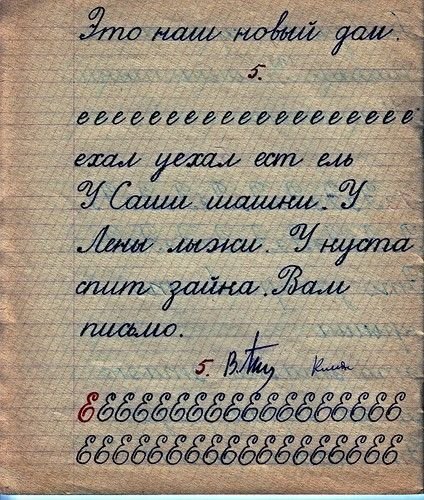 Это наш новый дом.
5.
е е е е е е е е е е е е е е е е е е
ехал уехал ест ель
У Саши шашки. У
Лены лыжи. У куста
спит зайка. Вам
письмо.
5.
Е Е Е Е Е Е Е Е Е Е Е Е Е Е Е Е Е Е
Е Е Е Е Е Е Е Е Е Е Е Е Е Е Е Е Е Е